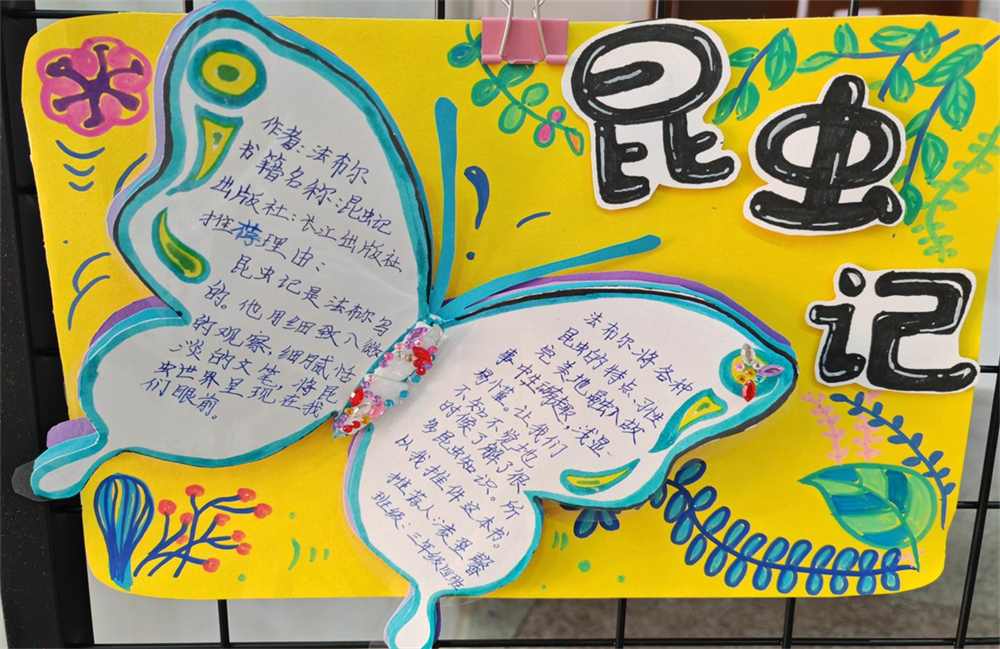 昆虫记
作者：法布尔
书籍名称：昆虫记
出版社：长江出版社
推荐理由：
昆虫记是法布尔写
的。他用细致入微
的观察，细腻恬
淡的文笔，将昆
虫世界呈现在我
们眼前。
法布尔将各种
昆虫的特点、习性
完美地融入故
事中生硒趣，浅显
易懂。让我们
不知不觉地
的时候了解了很
多昆虫知识。所
以我推件这本书。
推荐人：凌
班级：三年级四班